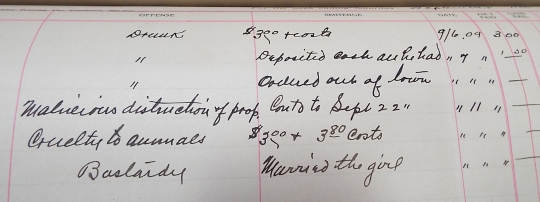 OFFENSE SENTENCE DATE AM'T PAID
Drunk $3.00 + costs 9/6.09 3 00
" Deposited cash all he had " 7 " 1 00
" Ordered out of town " " " —
Malicious distruction of prop. Cont'd to Sept 22" " 11 " —
Cruelty to animals $3.00 + 3.80 Costs " " " —
Bastardy Married the girl " " " —